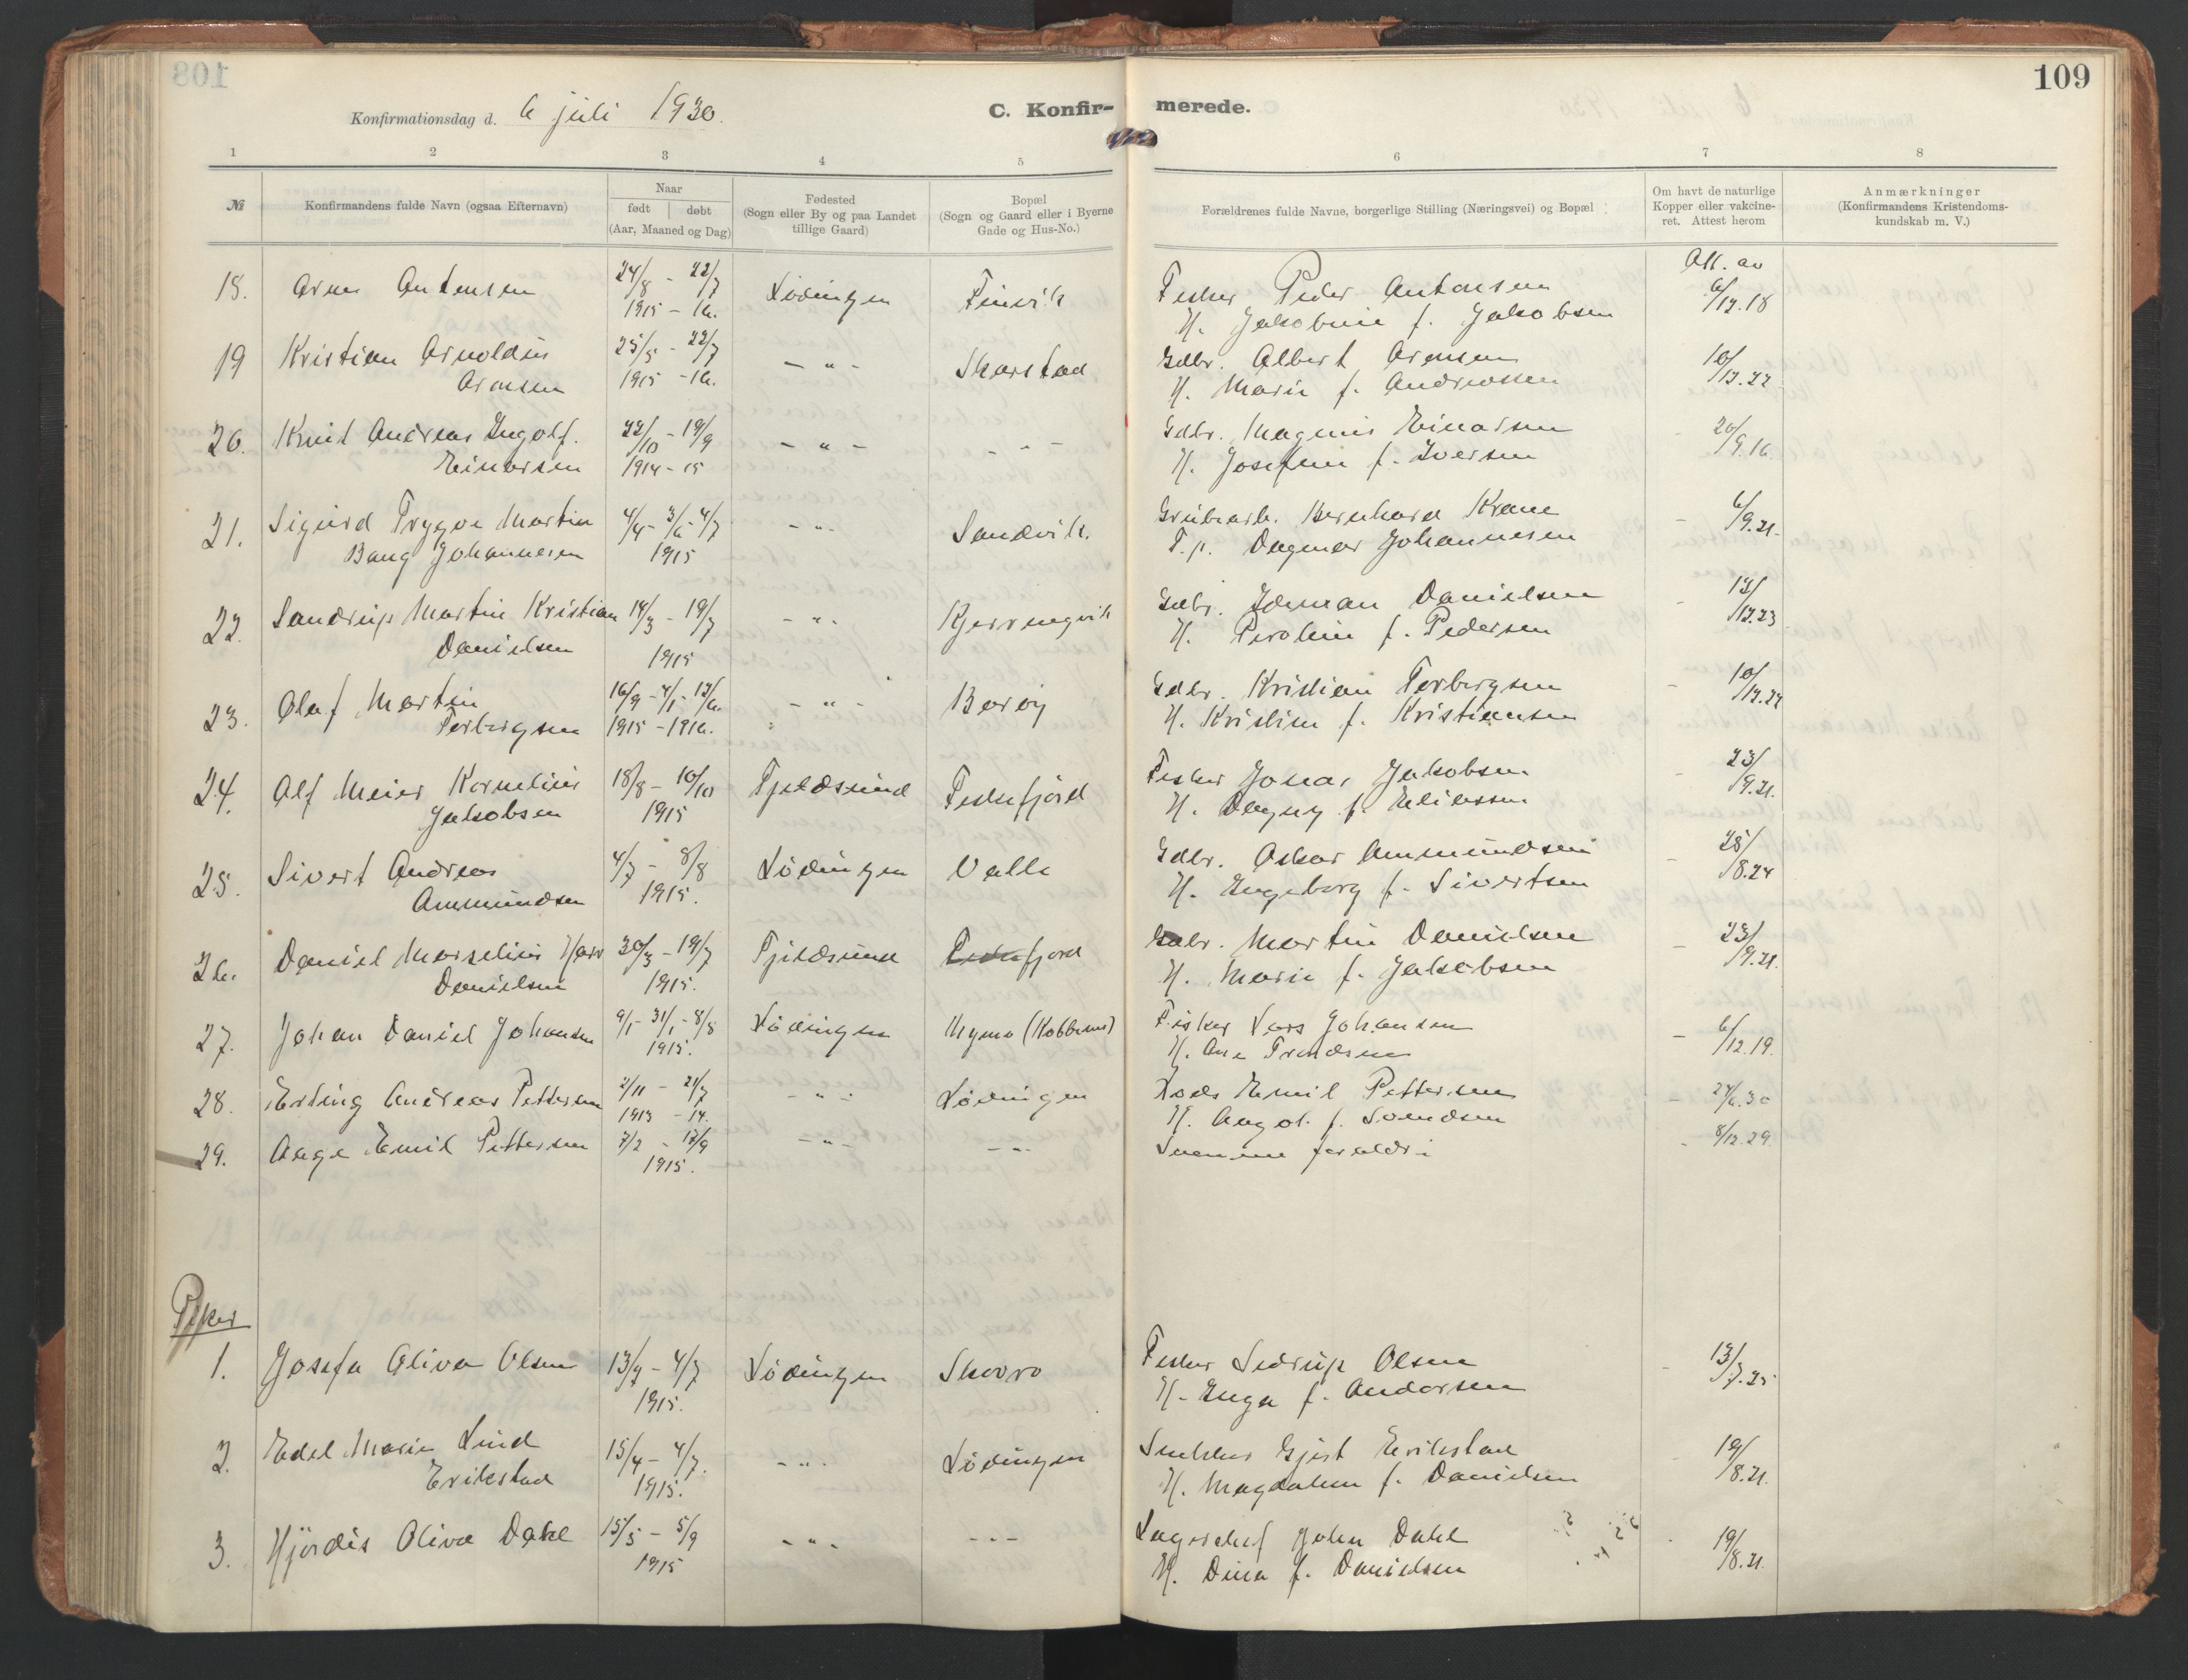 109
Konfirmationsdag d. 6 juli 1930.
C. Konfir-merede.
1 2 3 4 5 6 7 8
№
Konfirmandens fulde Navn (ogsaa Efternavn)
Naar
født | døbt
(Aar, Maaned og Dag)
Fødested
(Sogn eller By og paa Landet
tillige Gaard)
Bopæl
(Sogn og Gaard eller i Byerne
Gade og Hus-No.)
Forældrenes fulde Navne, borgerlige Stilling (Næringsvei) og Bopæl
Om havt de naturlige
Kopper eller vakcine-
ret. Attest herom
Anmærkninger
(Konfirmandens Kristendoms-
kundskab m. V.)
18. Arne Antonsen 24/8 - 22/7 Lödingen Finvik Fisker Peder Antonsen Att. av 6/12.18
1915 - 16. H. Jakobine f. Jakobsen
19 Kristian Arnoldus 25/5 - 22/7 - " - Skarstad Gdbr. Albert Aronsen 10/12.22
Aronsen 1915 - 16. H. Marie f. Andreassen
20. Knut Andreas Ingolf. 22/10 - 19/9 - " - - - Gdbr. Magnus Einarsen - 20/9.16.
Einarsen 1914 - 15 H. Josefine f. Iversen
21. Sigurd Trygve Martin 4/4 - 3/6 - 4/7 - " - Sandvik. Grubearb. Bernhard Krane - 6/9.21.
Bang Johannesen 1915 F.p. Dagmar Johannesen
22. Sandrup Martin Kristian 14/3 - 19/7 - " - Kjerringvik Gdbr. Herman Danielsen - 12/12.23
Danielsen 1915 H. Peroline f. Pedersen
23. Olaf Martin 16/9 - 4/1 - 12/6. - " - Barøy Gdbr. Kristian Torbergsen - 10/12.22
Torbergsen 1915 - 1916. H. Kristine f. Kristiansen
24. Alf Meier Kornelius 18/8 - 10/10 Tjeldsund Fiskefjord Fisker Jonas Jakobsen - 23/9.21.
Jakobsen 1915 H. Dagny f. Eliassen
25. Sivert Andreas 4/7 - 8/8 Lödingen Valle Gdbr. Oskar Ammundsen - 25/8.24
Ammundsen 1915. H. Ingeborg f. Sivertsen
26. Daniel Marselius Danielsen 30/3 - 19/7 Tjeldsund fjord Gdbr. Martin Danielsen - 23/9.21.
1915. H. Marie f. Jakobsen
27. Johan Daniel Johansen 9/1 - 31/1 - 8/8 Lödingen Fisker Lars Johansen - 6/12.19.
1915. H. Ane
28. Erling Andreas Pettersen 2/11 - 21/7 - " - Lödingen Lods Emil Pettersen - 27/6.30
1913 - 14. H. Aagot. f. Svendsen
29. Aage Emil Pettersen 7/2 - 12/9 - " - - " - Samme foreldre - 8/12.29.
1915.
Piker
1. Josefa Oliva Olsen 13/4 - 4/7 Lödingen Skovro Fisker Sedrup Olsen - 13/7.25
1915. H. Inga f. Andersen
2. Edel Marie Lind 15/4 - 4/7. - " - Lödingen Snekker Gjert Erikstad 19/8.21.
Erikstad 1915. H. Magdalene f. Danielsen
3. Hjördis Oliva Dahl 15/5 - 5/9 - " - - - - Lagerchef John Dahl 19/8.21.
1915 H. Dina f. Danielsen